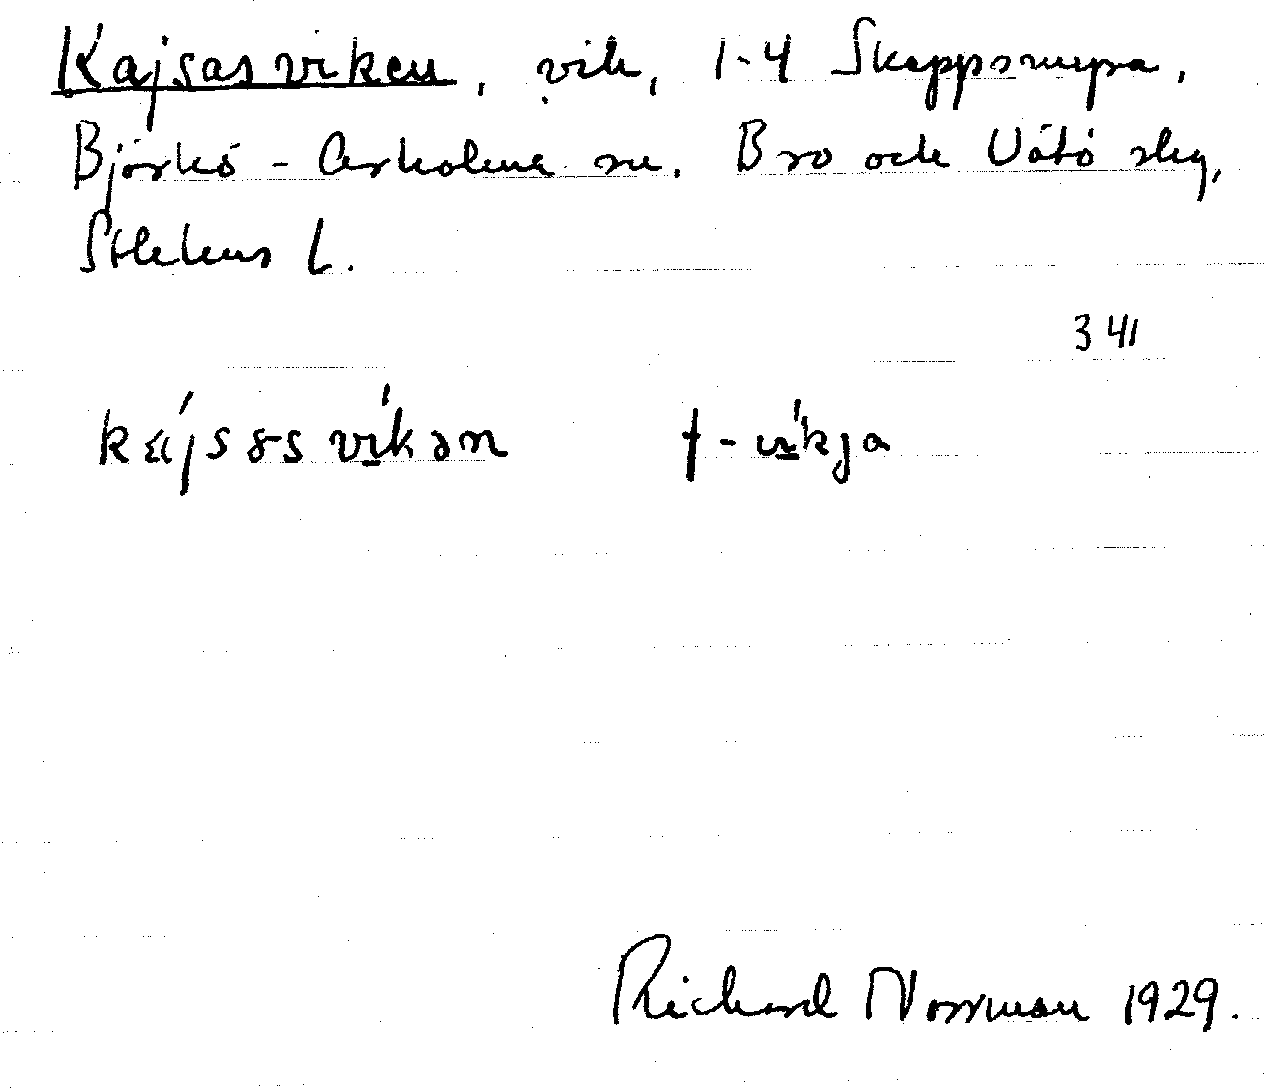 Kajsasviken, vik, 1-4 Skeppsmyra,
Björkö-Arholma sn. Bro och Vätö skg,
Sthlms L.
341
kájsasvíkən †-víkja
Richard Norrman 1929.